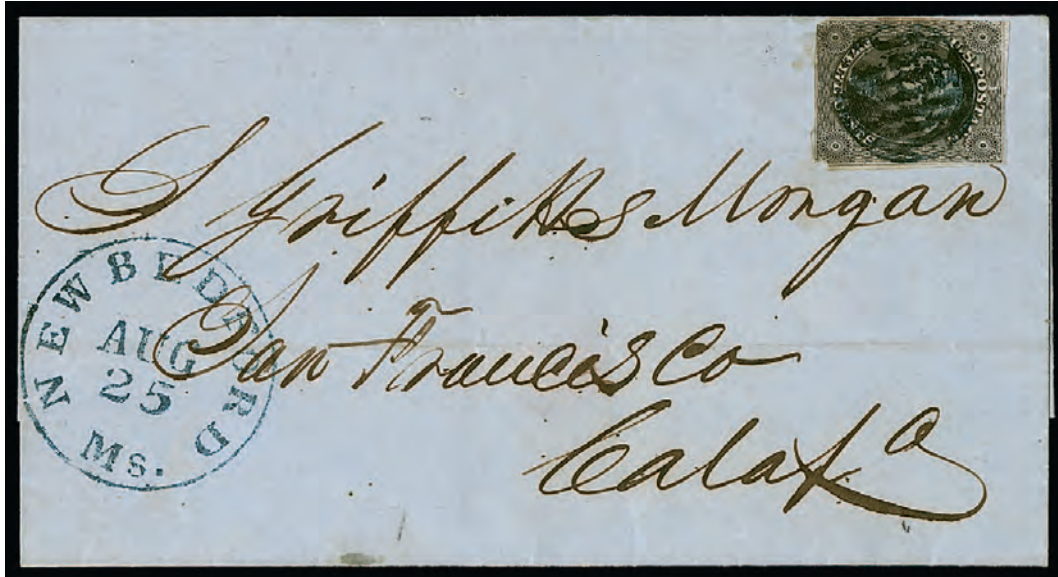 U.S. POSTA
S Griffitts Morgan
San Francisco
Calafa
NEW BEDFORD
AUG
25
Ms.